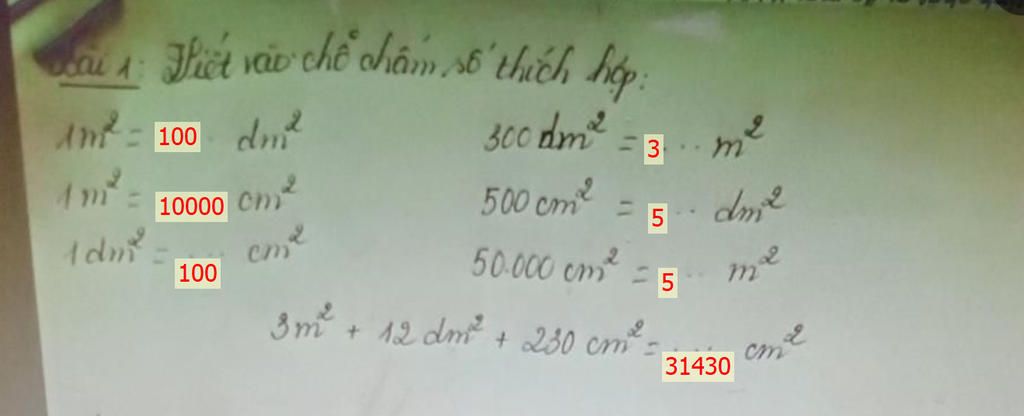 Bài 1: Viết vào chỗ chấm số thích hợp:
1m² = 100 dm² 300 dm² = 3 ... m²
1m² = 10000 cm² 500 cm² = 5 ... dm²
1dm² = ... 100 cm² 50.000 cm² = 5 ... m²
3m² + 12 dm² + 230 cm² = .... 31430 cm²